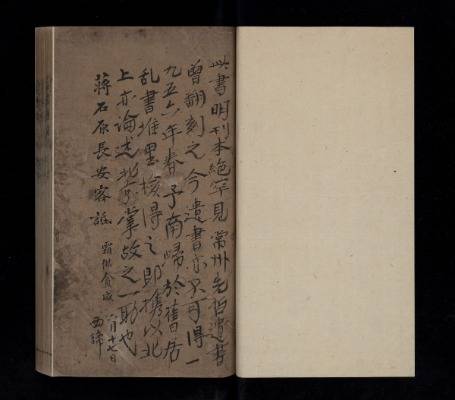 此書明刊本絕罕見常州先哲遺書
曾翻刻之今遺書亦不可得一
九五六年春予南歸於舊居
乱書堆里檢得之即攜以北
上亦論述北京掌故之一助也
蔣石原長安客話
八月十七日